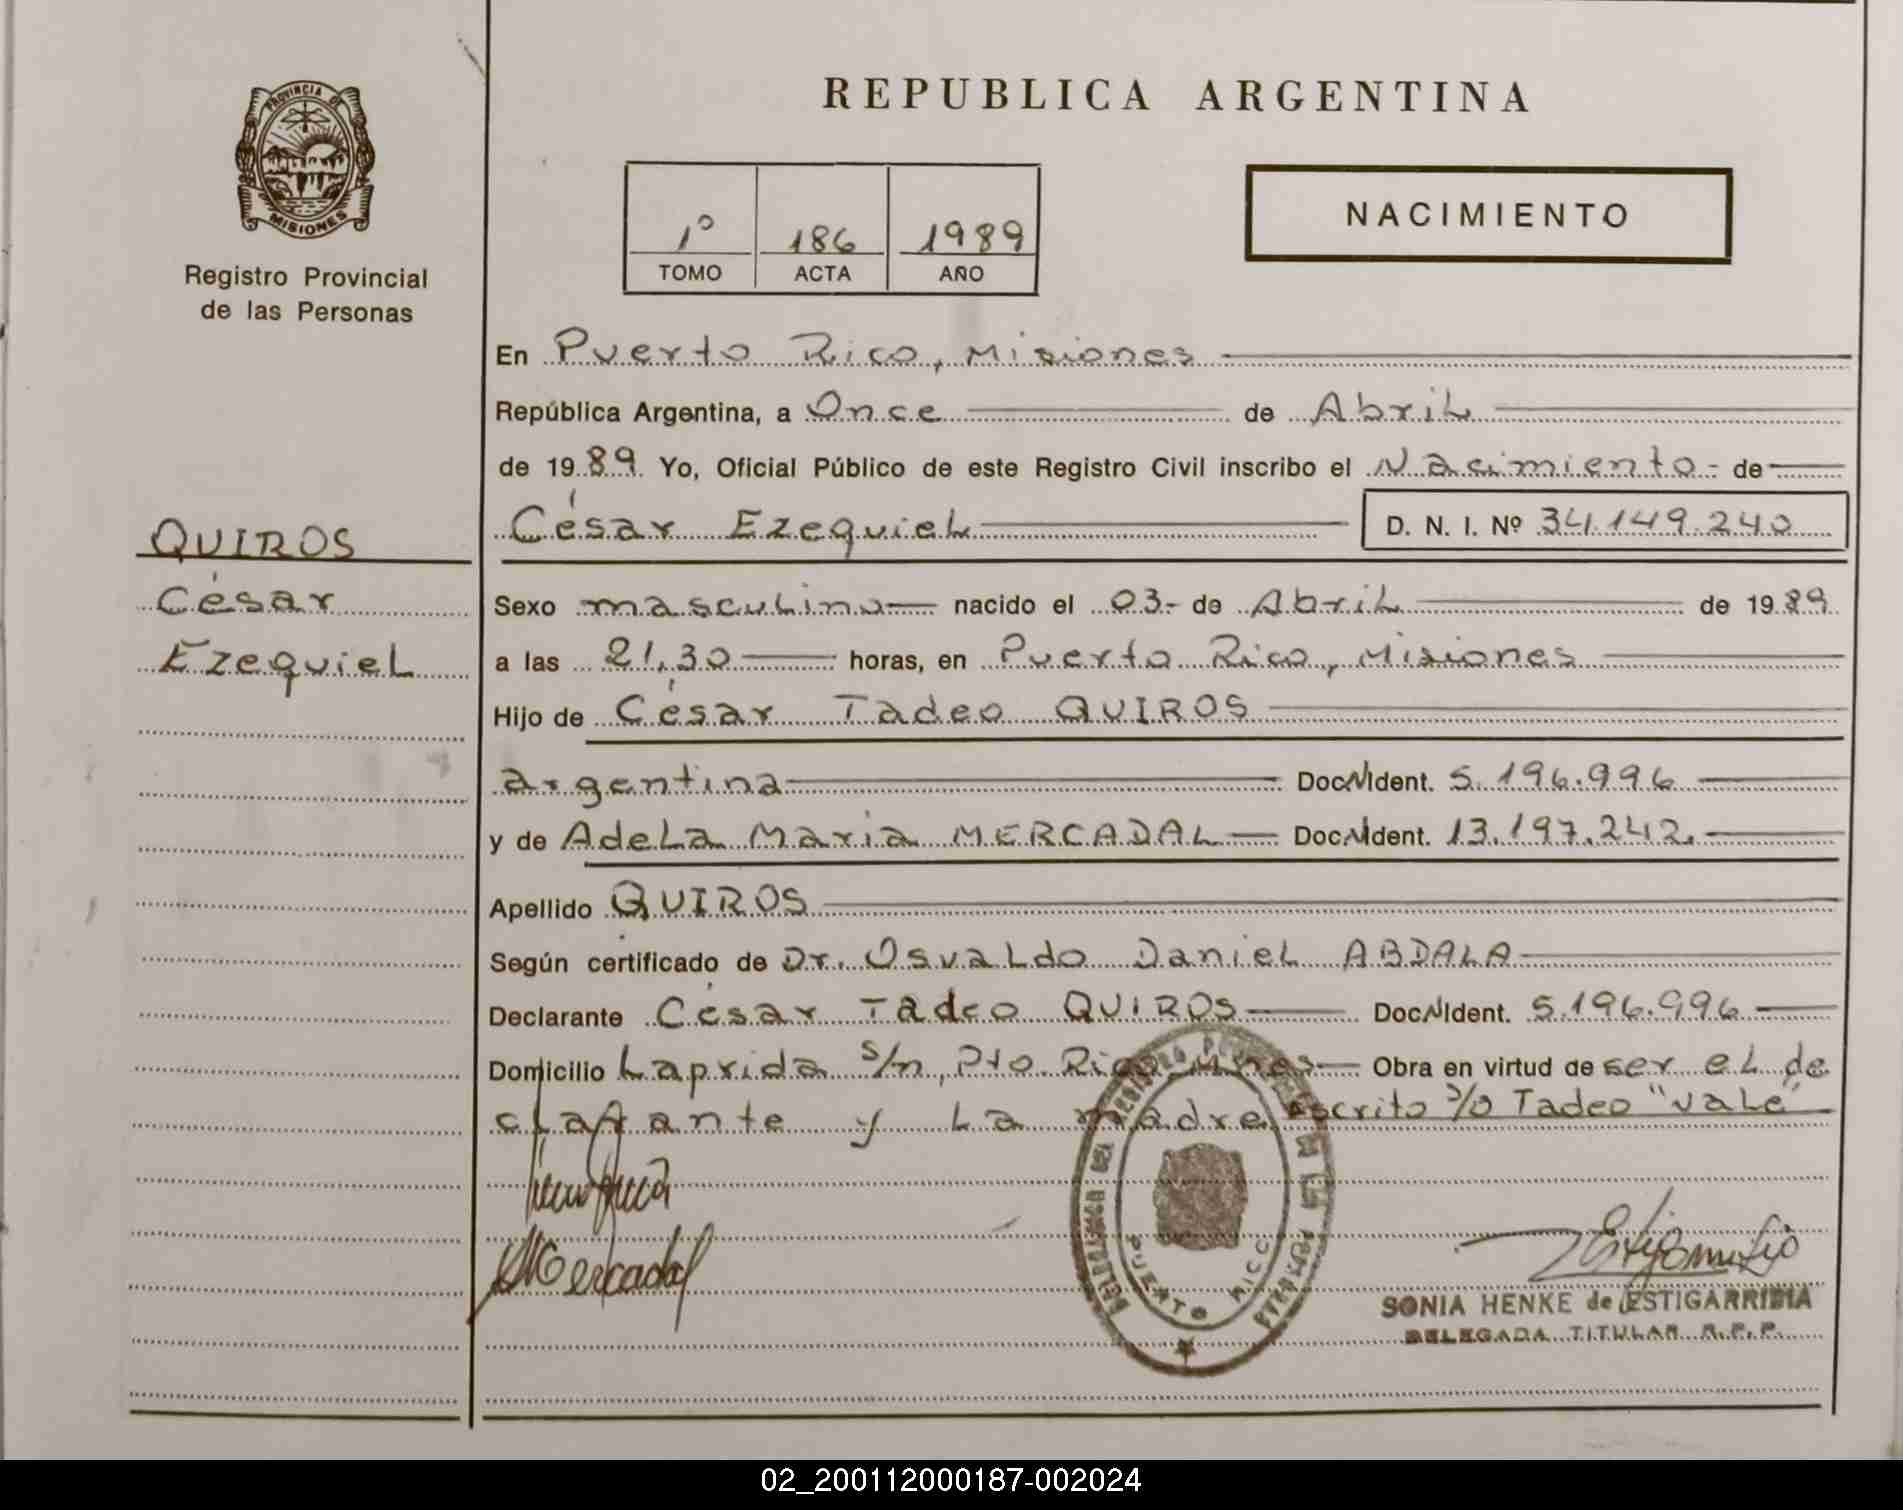 PROVINCIA DE
MISIONES
Registro Provincial
de las Personas
QUIROS
César
Ezequiel
REPUBLICA ARGENTINA
1º 186 1989
TOMO ACTA AÑO
NACIMIENTO
En Puerto Rico, Misiones
República Argentina, a Once de Abril
de 1989 Yo, Oficial Público de este Registro Civil inscribo el Nacimiento- de
César Ezequiel D. N. I. Nº 34.149.240
Sexo masculino nacido el 03- de Abril de 1989
a las 21,30 horas, en Puerto Rico, Misiones
Hijo de César Tadeo QUIROS
argentina Doc. Ident. 5.196.996
y de Adela Maria MERCADAL Doc. Ident. 13.197.242.
Apellido QUIROS
Según certificado de Dr. Osvaldo Daniel ABDALA
Declarante César Tadeo QUIROS Doc. Ident. 5.196.996
Domicilio Laprida s/n, Pto. Rico, Mnes Obra en virtud de ser el de
clarante y la madre, escrito s/o Tadeo "vale"
AMercadal
PUERTO RICO
SONIA HENKE de ESTIGARRIBIA
DELEGADA TITULAR R.P.P.
02_200112000187-002024